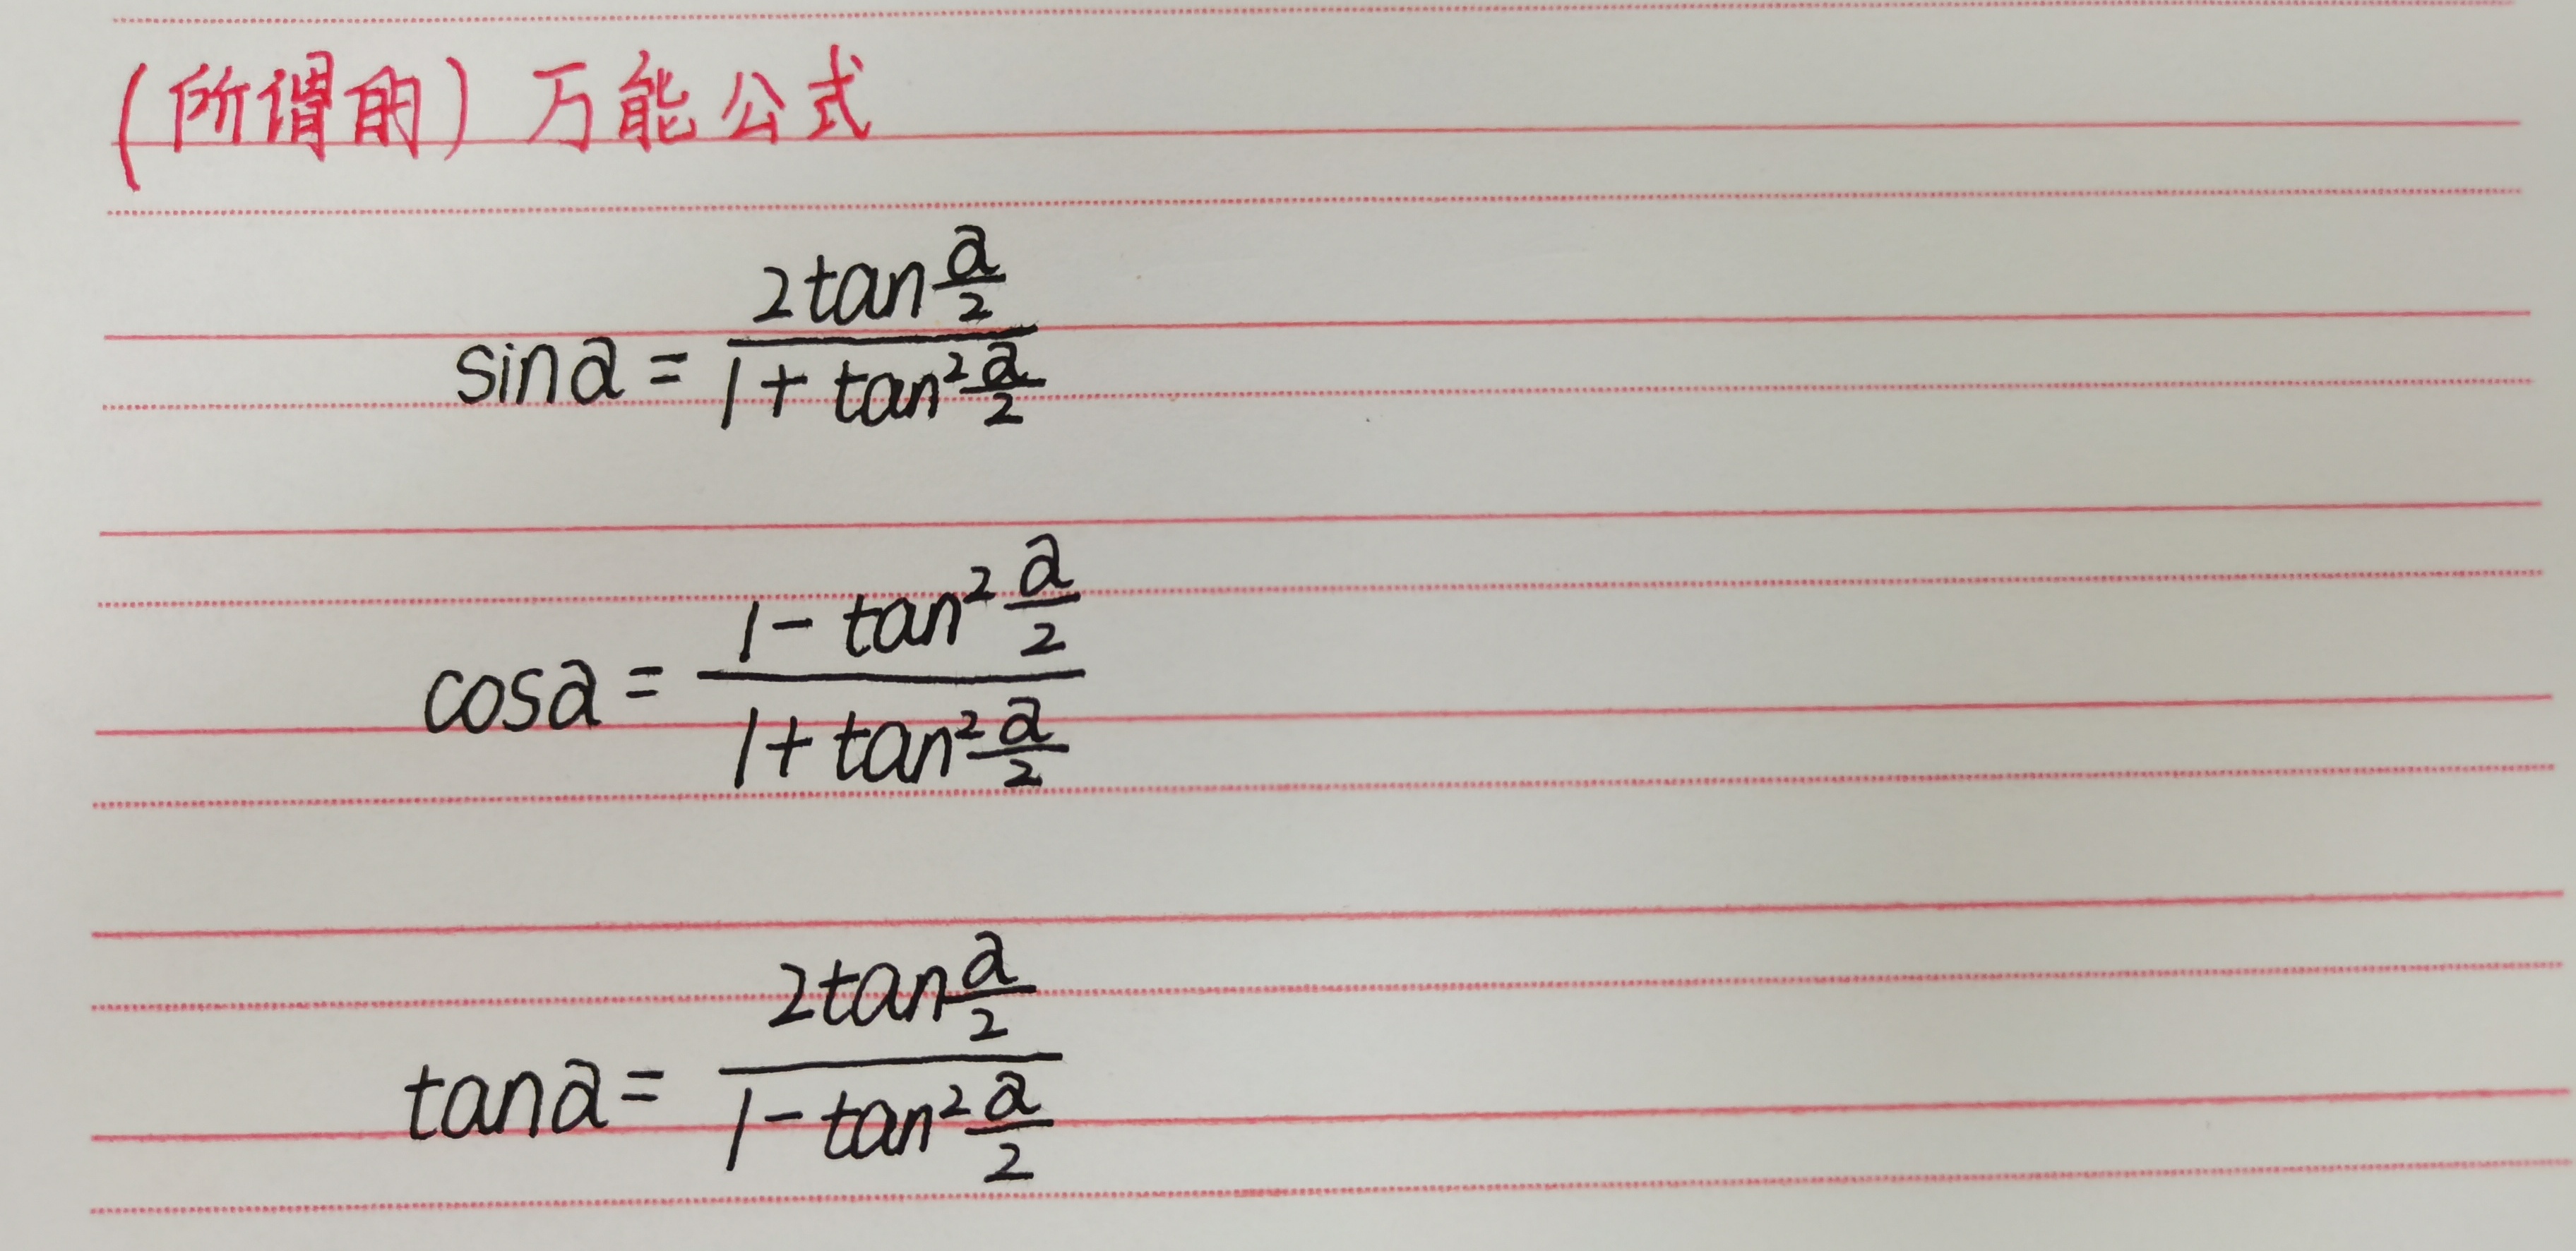 (所谓的) 万能公式
sina = \frac{2tan\frac{a}{2}}{1+tan^2\frac{a}{2}}
cosa = \frac{1-tan^2\frac{a}{2}}{1+tan^2\frac{a}{2}}
tana = \frac{2tan\frac{a}{2}}{1-tan^2\frac{a}{2}}